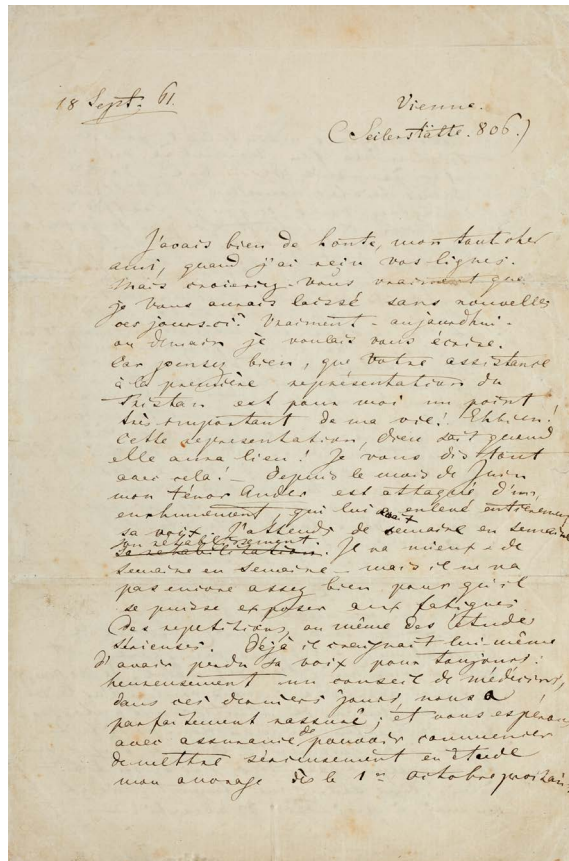 18 Sept. 61.
Vienne.
(Seilerstätte. 806.)
J'avais bien de honte, mon tout cher
ami, quand j'ai reçu vos lignes.
Mais croieriez-vous vraiment que
je vous aurais laissé sans nouvelles
ces jours-ci? Vraiment - aujourdhui -
ou demain je voulais vous écrire.
Car pensez bien, que Votre assistance
à la première représentation du
Tristan est pour moi un point
très important de ma vie! Ehbien!
Cette representation, Dieu sait quand
elle aura lieu! Je vous dis tout
avec cela! - Depuis le mois de Juin
mon ténor Ander est attaqué d'un
enrhumement, qui lui avait enlevé entièrement
sa voix. J'attends de semaine en semaine
son rétablissement.
sa réhabilitation. Il va mieux de
semaine en semaine - mais il ne va
pas encore assez bien pour qu'il
se puisse exposer aux fatigues
des repetitions, ou même des étude
sérieuses. Déjà il craignait lui-même
d'avoir perdu sa voix pour toujours:
heureusement un conseil de médecins,
dans ces derniers jours, nous a
parfaitement rassuré; et nous espérons
avec assurance de pouvoir commencer
de mettre sérieusement en étude
mon ouvrage dès le 1er octobre prochain.